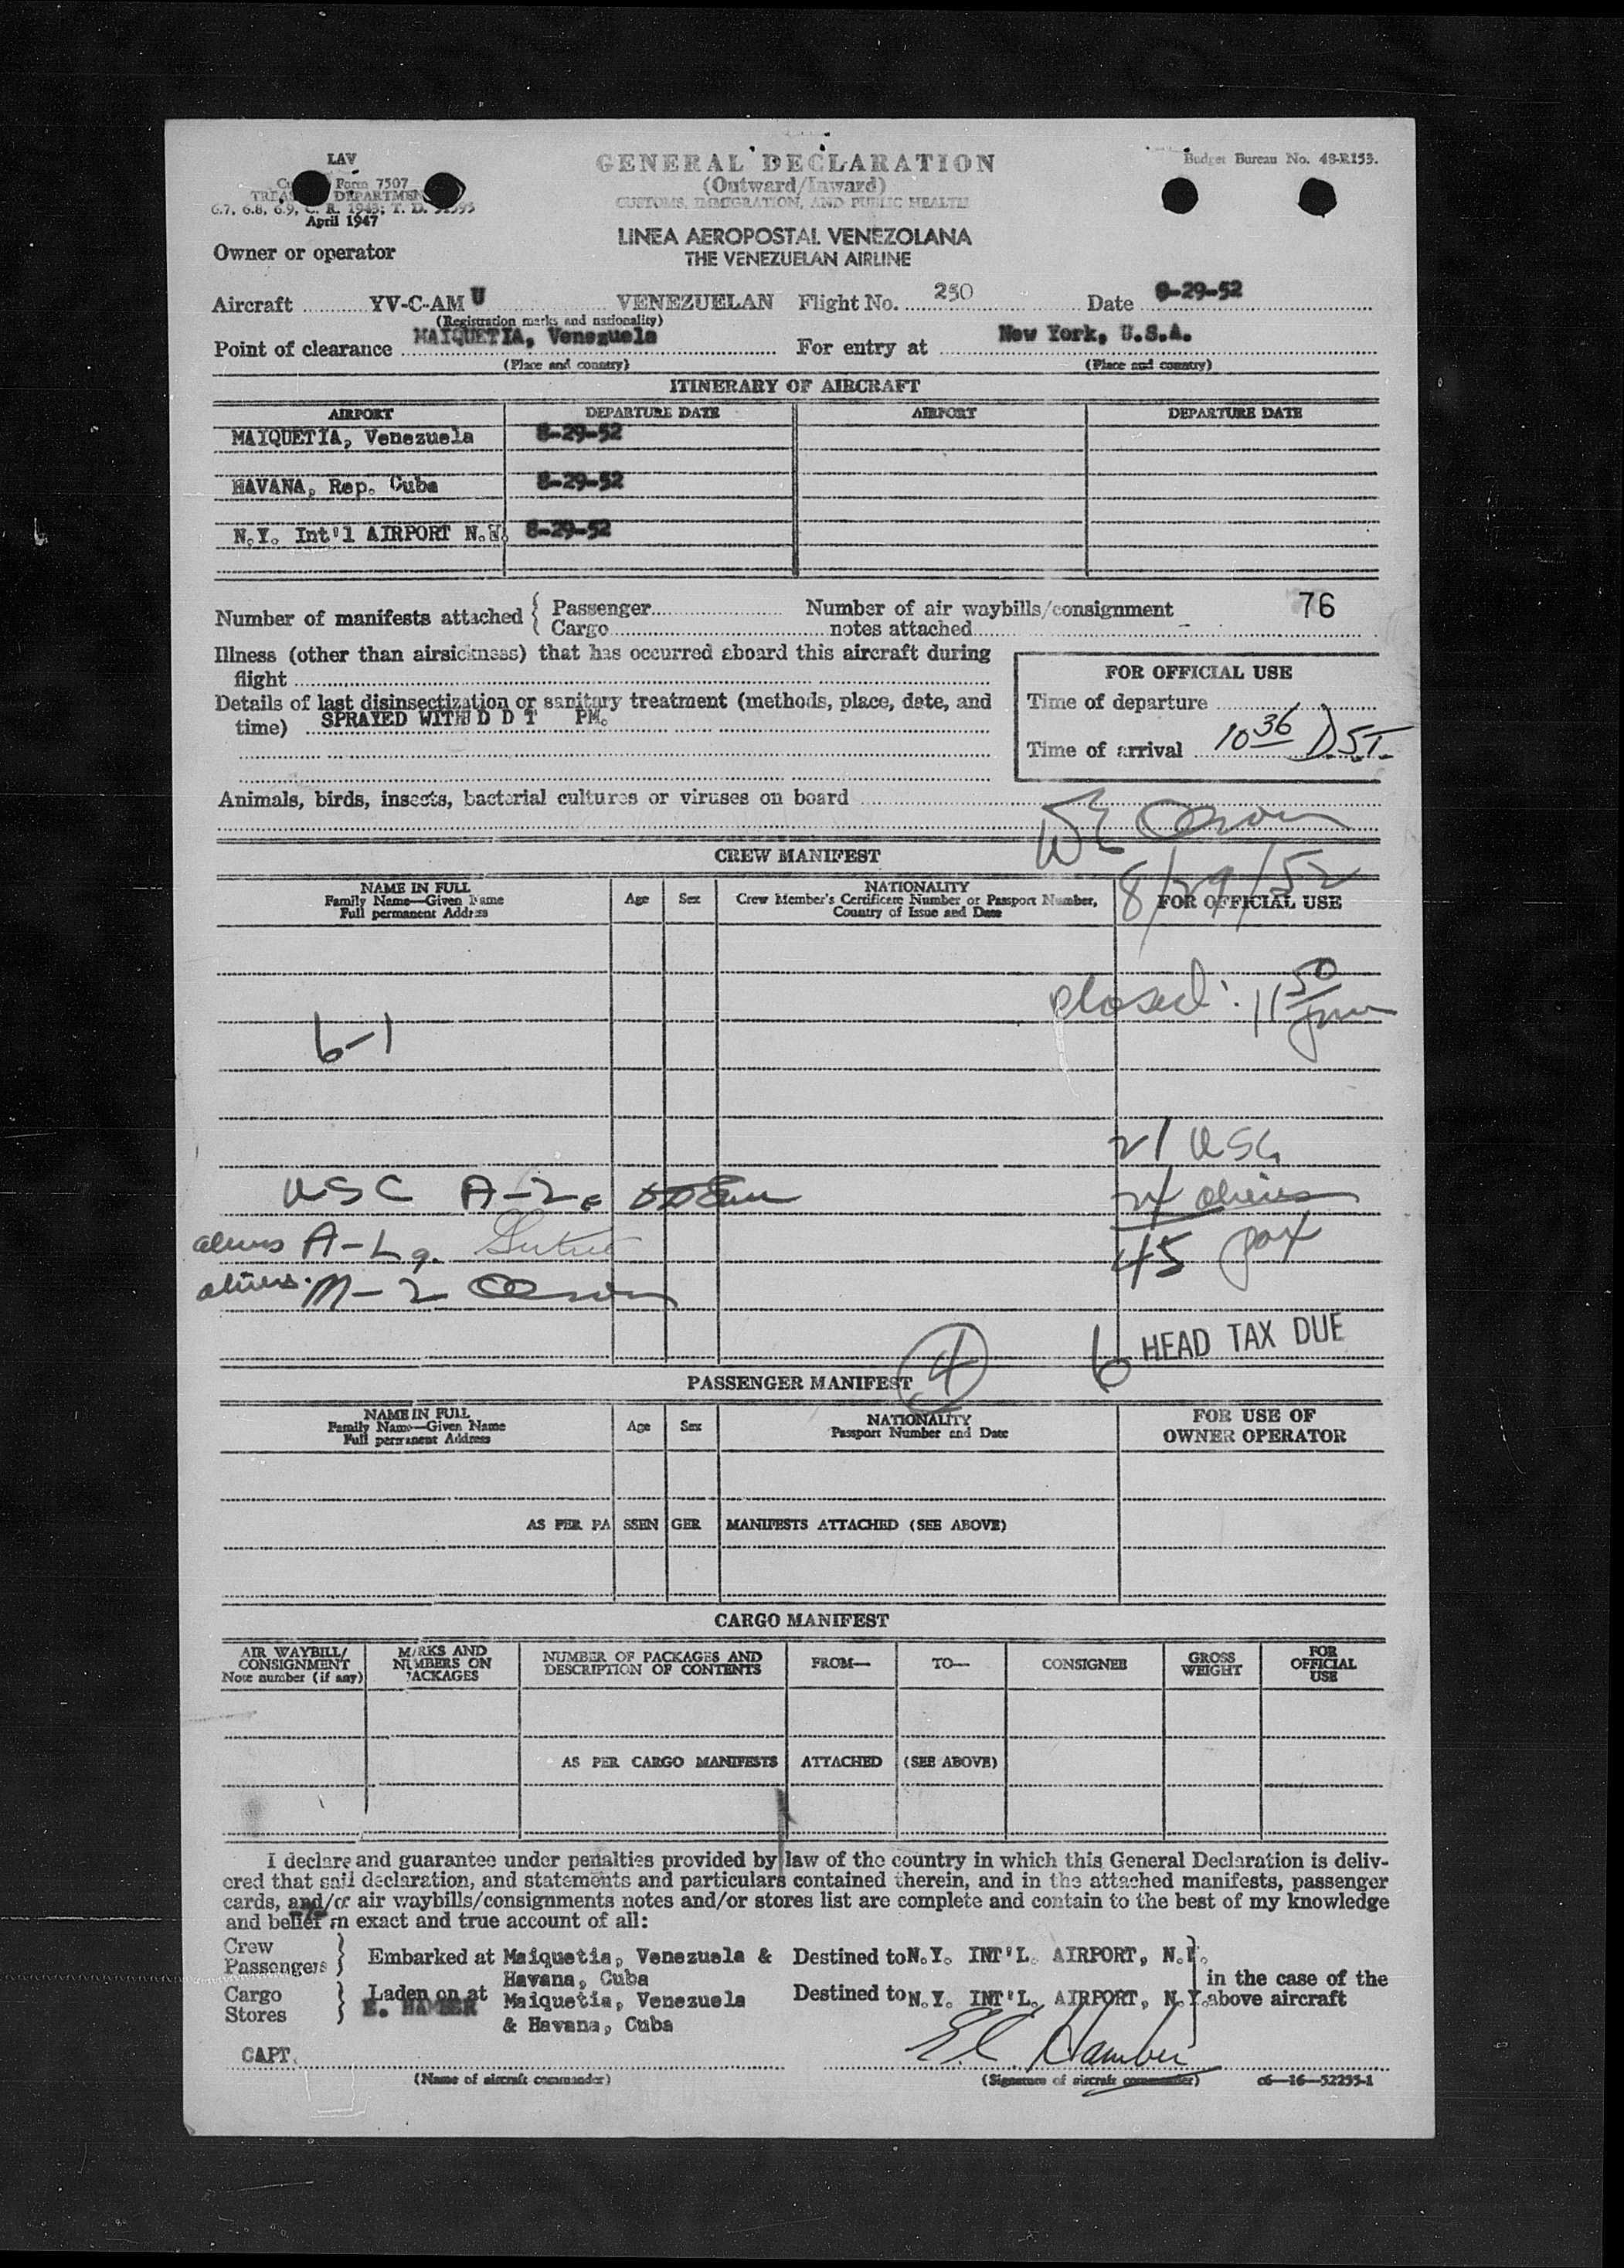 LAV
GENERAL DECLARATION
Budget Bureau No. 48-R153.
Form 7507
(Outward/Inward)
TREAS DEPARTMEN
CUSTOMS, IMMIGRATION, AND PUBLIC HEALTH
6.7, 6.8, 6.9, C. R. 1943; T. D.
April 1947
LINEA AEROPOSTAL VENEZOLANA
THE VENEZUELAN AIRLINE
Owner or operator
Aircraft YV-C-AM U VENEZUELAN Flight No. 250 Date 8-29-52
(Registration marks and nationality)
Point of clearance MAIQUETIA, Venezuela For entry at New York, U.S.A.
(Place and country) (Place and country)
ITINERARY OF AIRCRAFT
AIRPORT DEPARTURE DATE AIRPORT DEPARTURE DATE
MAIQUETIA, Venezuela 8-29-52
HAVANA, Rep. Cuba 8-29-52
N.Y. Int'l AIRPORT N.Y. 8-29-52
Number of manifests attached { Passenger Number of air waybills/consignment 76
Cargo notes attached
Illness (other than airsickness) that has occurred aboard this aircraft during
flight
FOR OFFICIAL USE
Details of last disinsectization or sanitary treatment (methods, place, date, and
Time of departure
time) SPRAYED WITH D D T PM.
Time of arrival 10 36 D.S.T.
Animals, birds, insects, bacterial cultures or viruses on board
CREW MANIFEST
8/29/52
NAME IN FULL
Family Name—Given Name
Full permanent Address
Age Sex
NATIONALITY
Crew Member's Certificate Number or Passport Number,
Country of Issue and Date
FOR OFFICIAL USE
closed: 11 50
6-1
21 USC
USC A-2
24 aliens
aliens A-L
45 pax
aliens M-2
6 HEAD TAX DUE
4
PASSENGER MANIFEST
NAME IN FULL
Family Name—Given Name
Full permanent Address
Age Sex
NATIONALITY
Passport Number and Date
FOR USE OF
OWNER OPERATOR
AS PER PA SSEN GER MANIFESTS ATTACHED (SEE ABOVE)
CARGO MANIFEST
AIR WAYBILL/
CONSIGNMENT
Note number (if any)
MARKS AND
NUMBERS ON
PACKAGES
NUMBER OF PACKAGES AND
DESCRIPTION OF CONTENTS
FROM— TO— CONSIGNEE
GROSS
WEIGHT
FOR
OFFICIAL
USE
AS PER CARGO MANIFESTS ATTACHED (SEE ABOVE)
I declare and guarantee under penalties provided by law of the country in which this General Declaration is deliv-
ered that said declaration, and statements and particulars contained therein, and in the attached manifests, passenger
cards, and/or air waybills/consignments notes and/or stores list are complete and contain to the best of my knowledge
and belief an exact and true account of all:
Crew
Passengers } Embarked at Maiquetia, Venezuela & Destined to N.Y. INT'L. AIRPORT, N.Y.
Havana, Cuba
in the case of the
Cargo
Stores } Laden on at Maiquetia, Venezuela Destined to N.Y. INT'L. AIRPORT, N.Y. above aircraft
E. HAMBER
& Havana, Cuba
CAPT.
(Name of aircraft commander) (Signature of aircraft commander) c6—16—52255-1